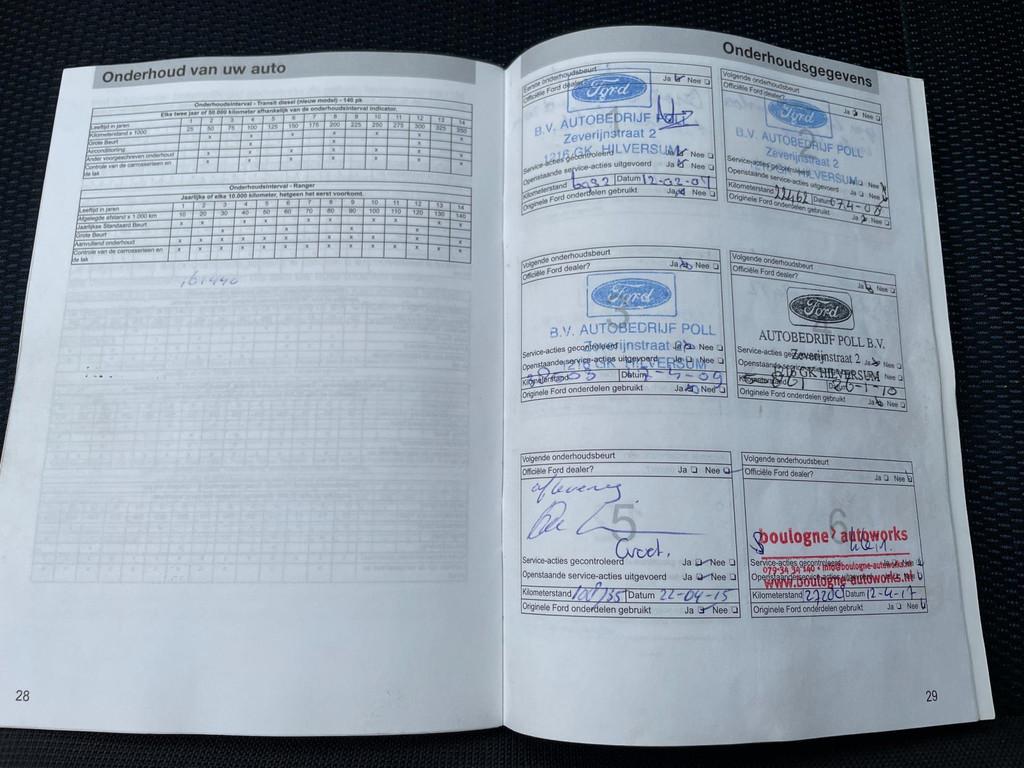 Onderhoud van uw auto
Onderhoudsinterval - Transit diesel (nieuw model) - 140 pk
Elke twee jaar of 50.000 kilometer afhankelijk van de onderhoudsinterval indicator.
Leeftijd in jaren 1 2 3 4 5 6 7 8 9 10 11 12 13 14
Kilometerstand x 1000 25 50 75 100 125 150 175 200 225 250 275 300 325 350
Grote Beurt
Airconditioning
Ander voorgeschreven onderhoud
Controle van de carrosserie en
de lak
Onderhoudsinterval - Ranger
Jaarlijks of elke 10.000 kilometer, hetgeen het eerst voorkomt.
Leeftijd in jaren 1 2 3 4 5 6 7 8 9 10 11 12 13 14
Afgelegde afstand x 1.000 km 10 20 30 40 50 60 70 80 90 100 110 120 130 140
Jaarlijkse Standaard Beurt
Grote Beurt
Aanvullend onderhoud x x x x x x x x x x x x x x
Controle van de carrosserie en x x x x x x x x x x x x x x
de lak
28
Onderhoudsgegevens
Eerste onderhoudsbeurt
Officiële Ford dealer? Ja Nee
Ford
B.V. AUTOBEDRIJF POLL
Zeverijnstraat 2
1216 GK HILVERSUM
Service-acties gecontroleerd Ja Nee
Openstaande service-acties uitgevoerd Ja Nee
Kilometerstand Datum 12-02-07
Originele Ford onderdelen gebruikt Ja Nee
Volgende onderhoudsbeurt
Officiële Ford dealer? Ja Nee
Ford
2
B.V. AUTOBEDRIJF POLL
Zeverijnstraat 2
HILVERSUM
Service-acties gecontroleerd
Openstaande service-acties uitgevoerd Ja Nee
Kilometerstand 22462 Datum 07-4-08
Originele Ford onderdelen gebruikt Ja Nee
Volgende onderhoudsbeurt
Officiële Ford dealer? Ja Nee
Ford
3
B.V. AUTOBEDRIJF POLL
Zeverijnstraat 2
1216 GK HILVERSUM
Service-acties gecontroleerd Ja Nee
Openstaande service-acties uitgevoerd Ja Nee
Kilometerstand Datum -4-09
Originele Ford onderdelen gebruikt Ja Nee
Volgende onderhoudsbeurt
Officiële Ford dealer? Ja Nee
Ford
AUTOBEDRIJF POLL B.V.
Zeverijnstraat 2
1216 GK HILVERSUM
Service-acties gecontroleerd Ja Nee
Openstaande service-acties uitgevoerd Ja Nee
Kilometerstand Datum 26-1-10
Originele Ford onderdelen gebruikt Ja Nee
Volgende onderhoudsbeurt
Officiële Ford dealer? Ja Nee
aflevering
5
Groot.
Service-acties gecontroleerd Ja Nee
Openstaande service-acties uitgevoerd Ja Nee
Kilometerstand Datum 22-04-15
Originele Ford onderdelen gebruikt Ja Nee
Volgende onderhoudsbeurt
Officiële Ford dealer? Ja Nee
6
boulogne autoworks
klein.
Service-acties gecontroleerd Ja Nee
079-34 34 140 • info@boulogne-autoworks.nl
Openstaande service-acties uitgevoerd Ja Nee
www.boulogne-autoworks.nl
Kilometerstand Datum 12-4-17
Originele Ford onderdelen gebruikt Ja Nee
29